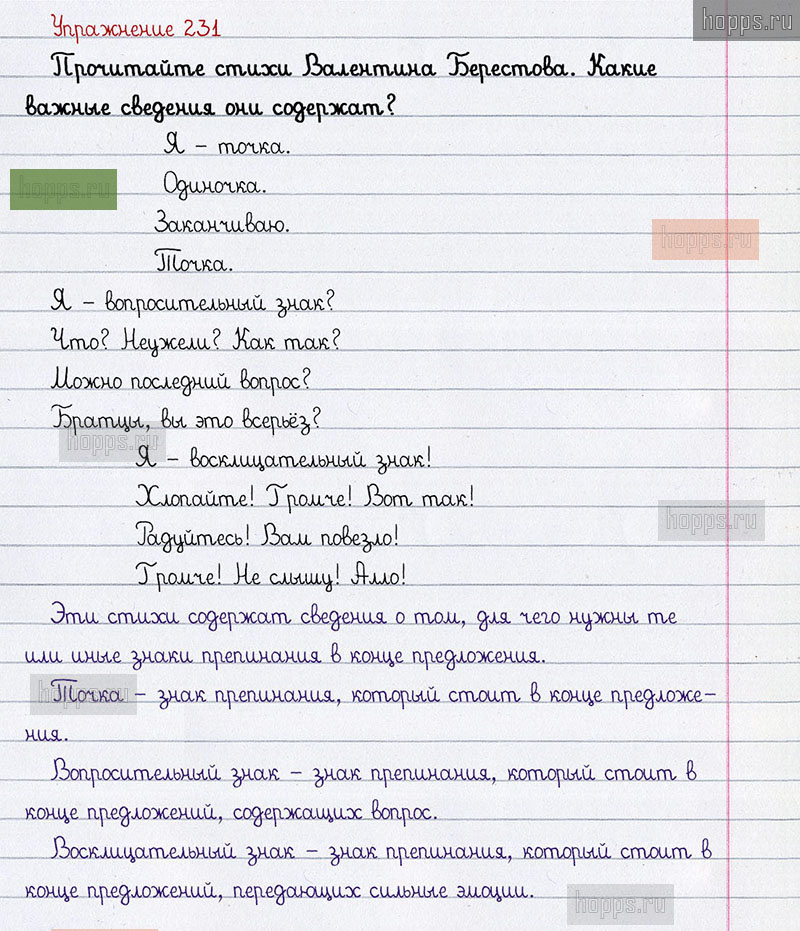 hopps.ru
Упражнение 231
Прочитайте стихи Валентина Берестова. Какие
важные сведения они содержат?
Я – точка.
Одиночка.
hopps.ru
Заканчиваю.
hopps.ru
Точка.
Я – вопросительный знак?
Что? Неужели? Как так?
Можно последний вопрос?
Братцы, вы это всерьёз?
hopps.ru
Я – восклицательный знак!
Хлопайте! Громче! Вот так!
hopps.ru
Радуйтесь! Вам повезло!
Громче! Не слышу! Алло!
Эти стихи содержат сведения о том, для чего нужны те
или иные знаки препинания в конце предложения.
hopps.ru
Точка – знак препинания, который стоит в конце предложе–
ния.
Вопросительный знак – знак препинания, который стоит в
конце предложений, содержащих вопрос.
Восклицательный знак – знак препинания, который стоит в
конце предложений, передающих сильные эмоции.
hopps.ru